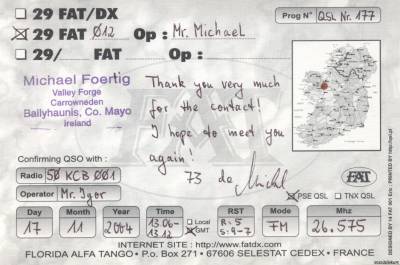 29 FAT/DX
Prog N° QSL Nr. 177
29 FAT Ø12 Op : Mr. Michael
29/ FAT Op :
Michael Foertig
Valley Forge
Carrowneden
Ballyhaunis, Co. Mayo
Ireland
Thank you very much
for the contact!
I hope to meet you
again!
73 de Michel
Confirming QSO with :
Radio 50 KCB 001
Operator Mr. Igor
FAT
PSE QSL TNX QSL
Day Month Year Time RST Mode MHz
17 11 2004 13.06- 13.12 Local GMT R-5 S-9-7 FM 26.575
INTERNET SITE : http://www.fatdx.com
FLORIDA ALFA TANGO • P.o. Box 271 • 67606 SELESTAT CEDEX • FRANCE